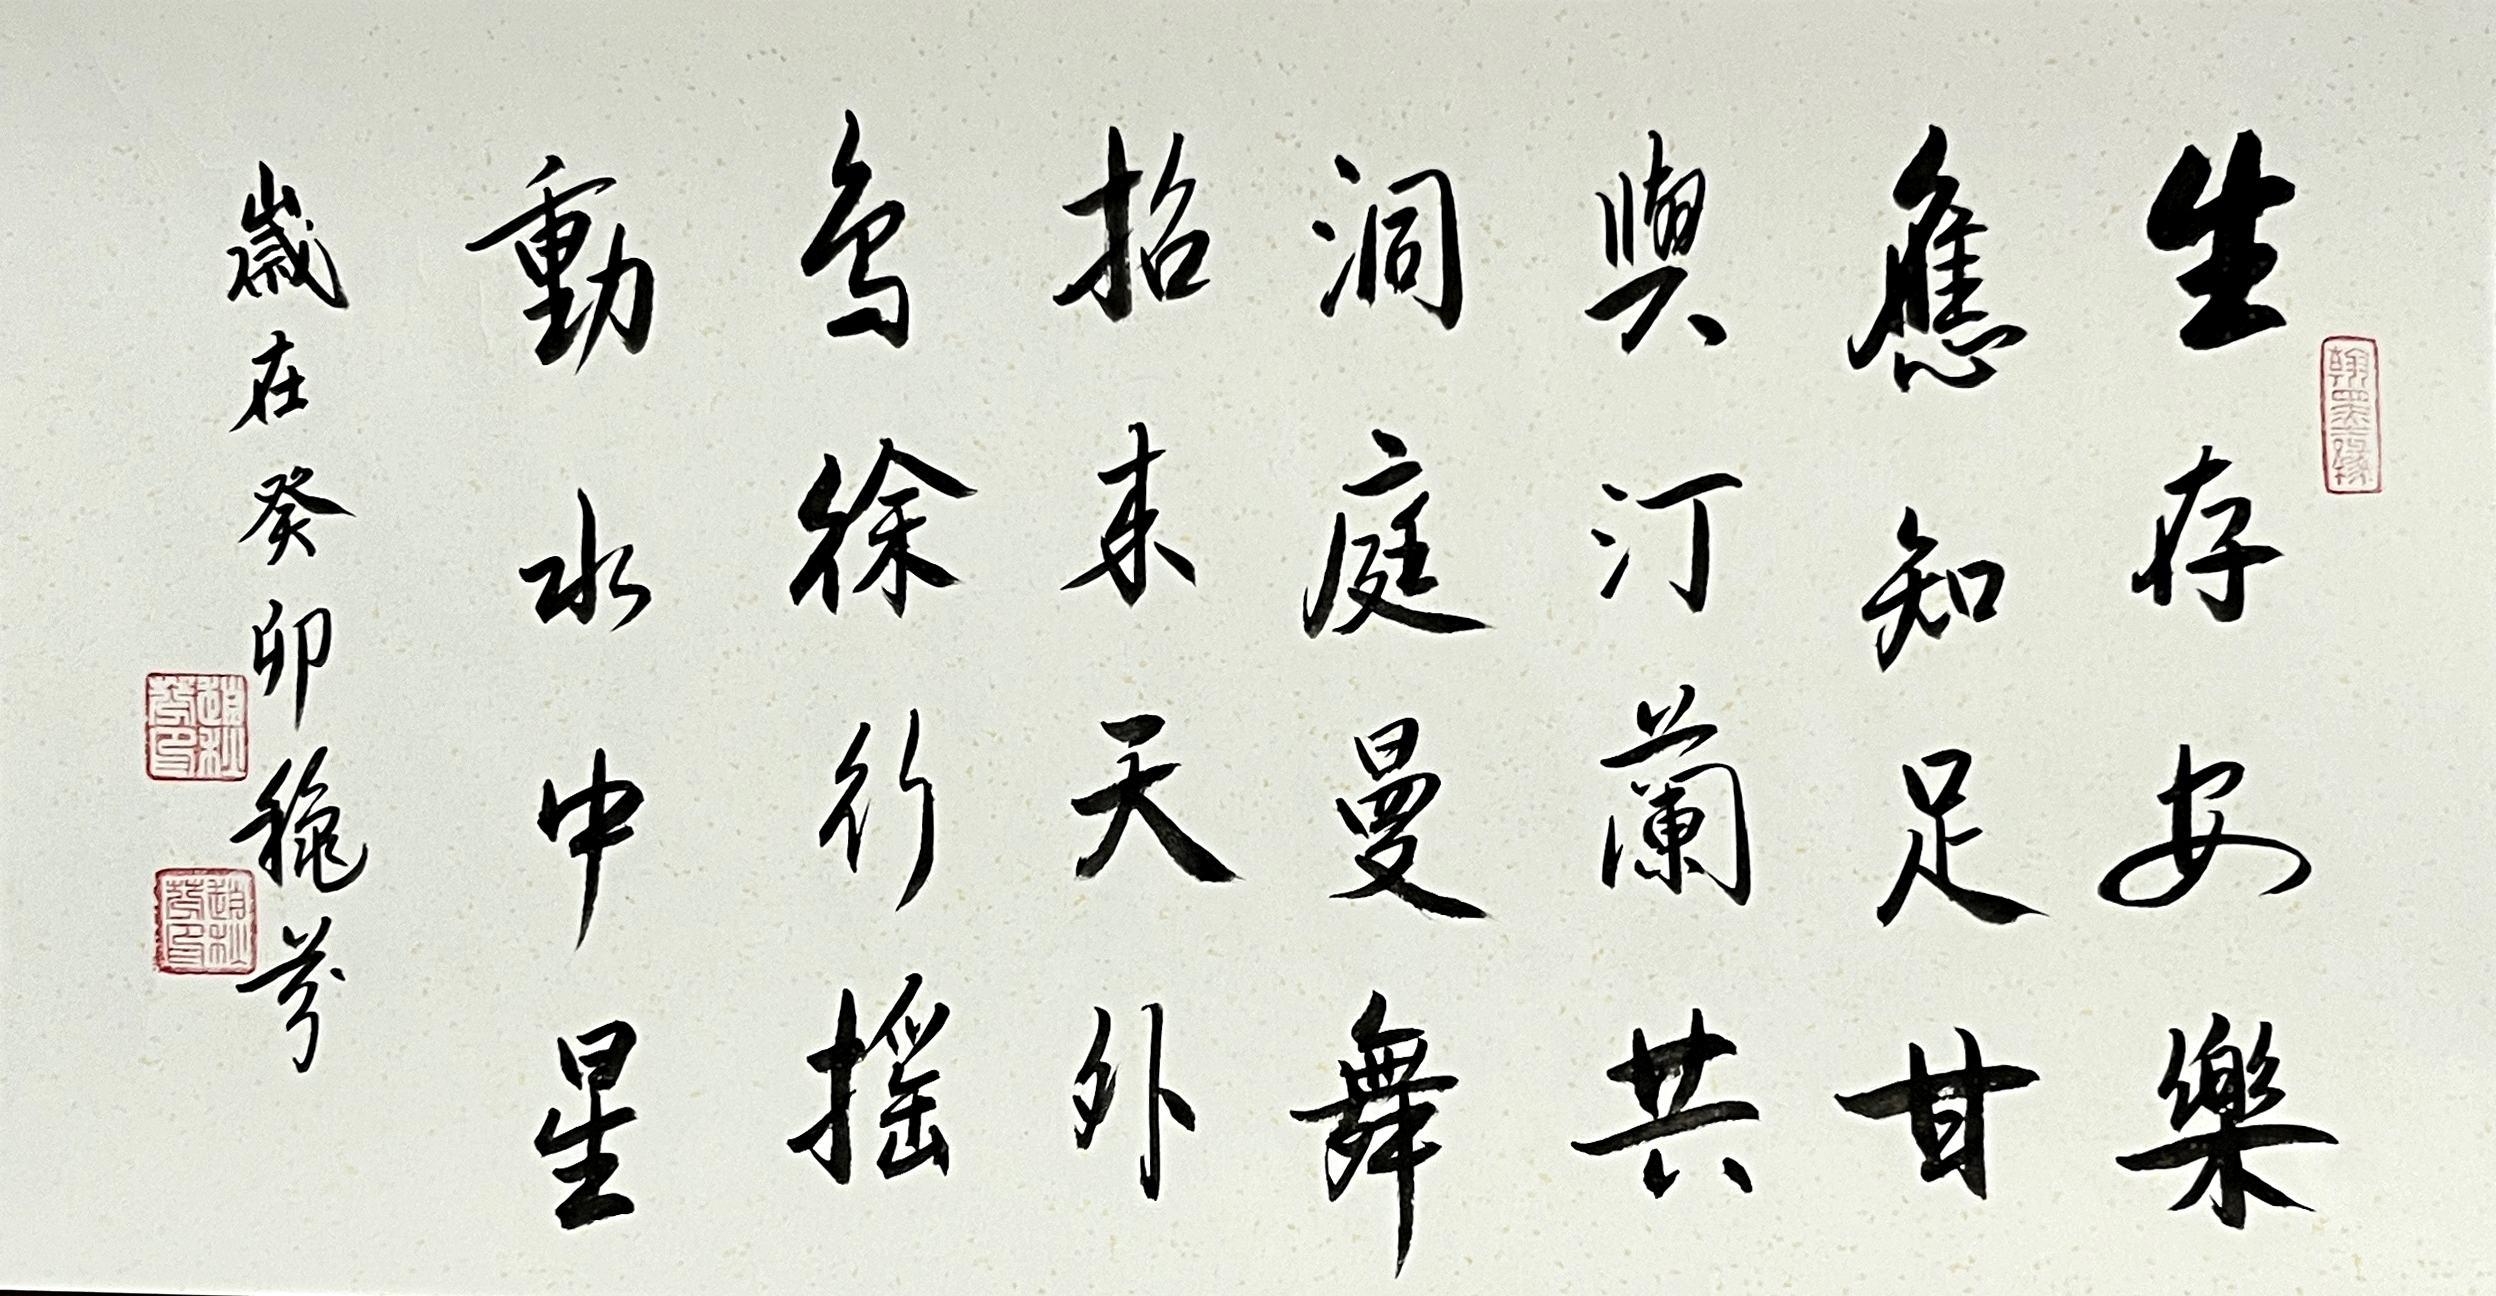 生存安樂
應知足甘
與汀蘭共
洞庭曼舞
招来天外
鳥徐行摇
動水中星
歲在癸卯 穐芬
翰墨緣
趙秋芬印
趙秋芬印